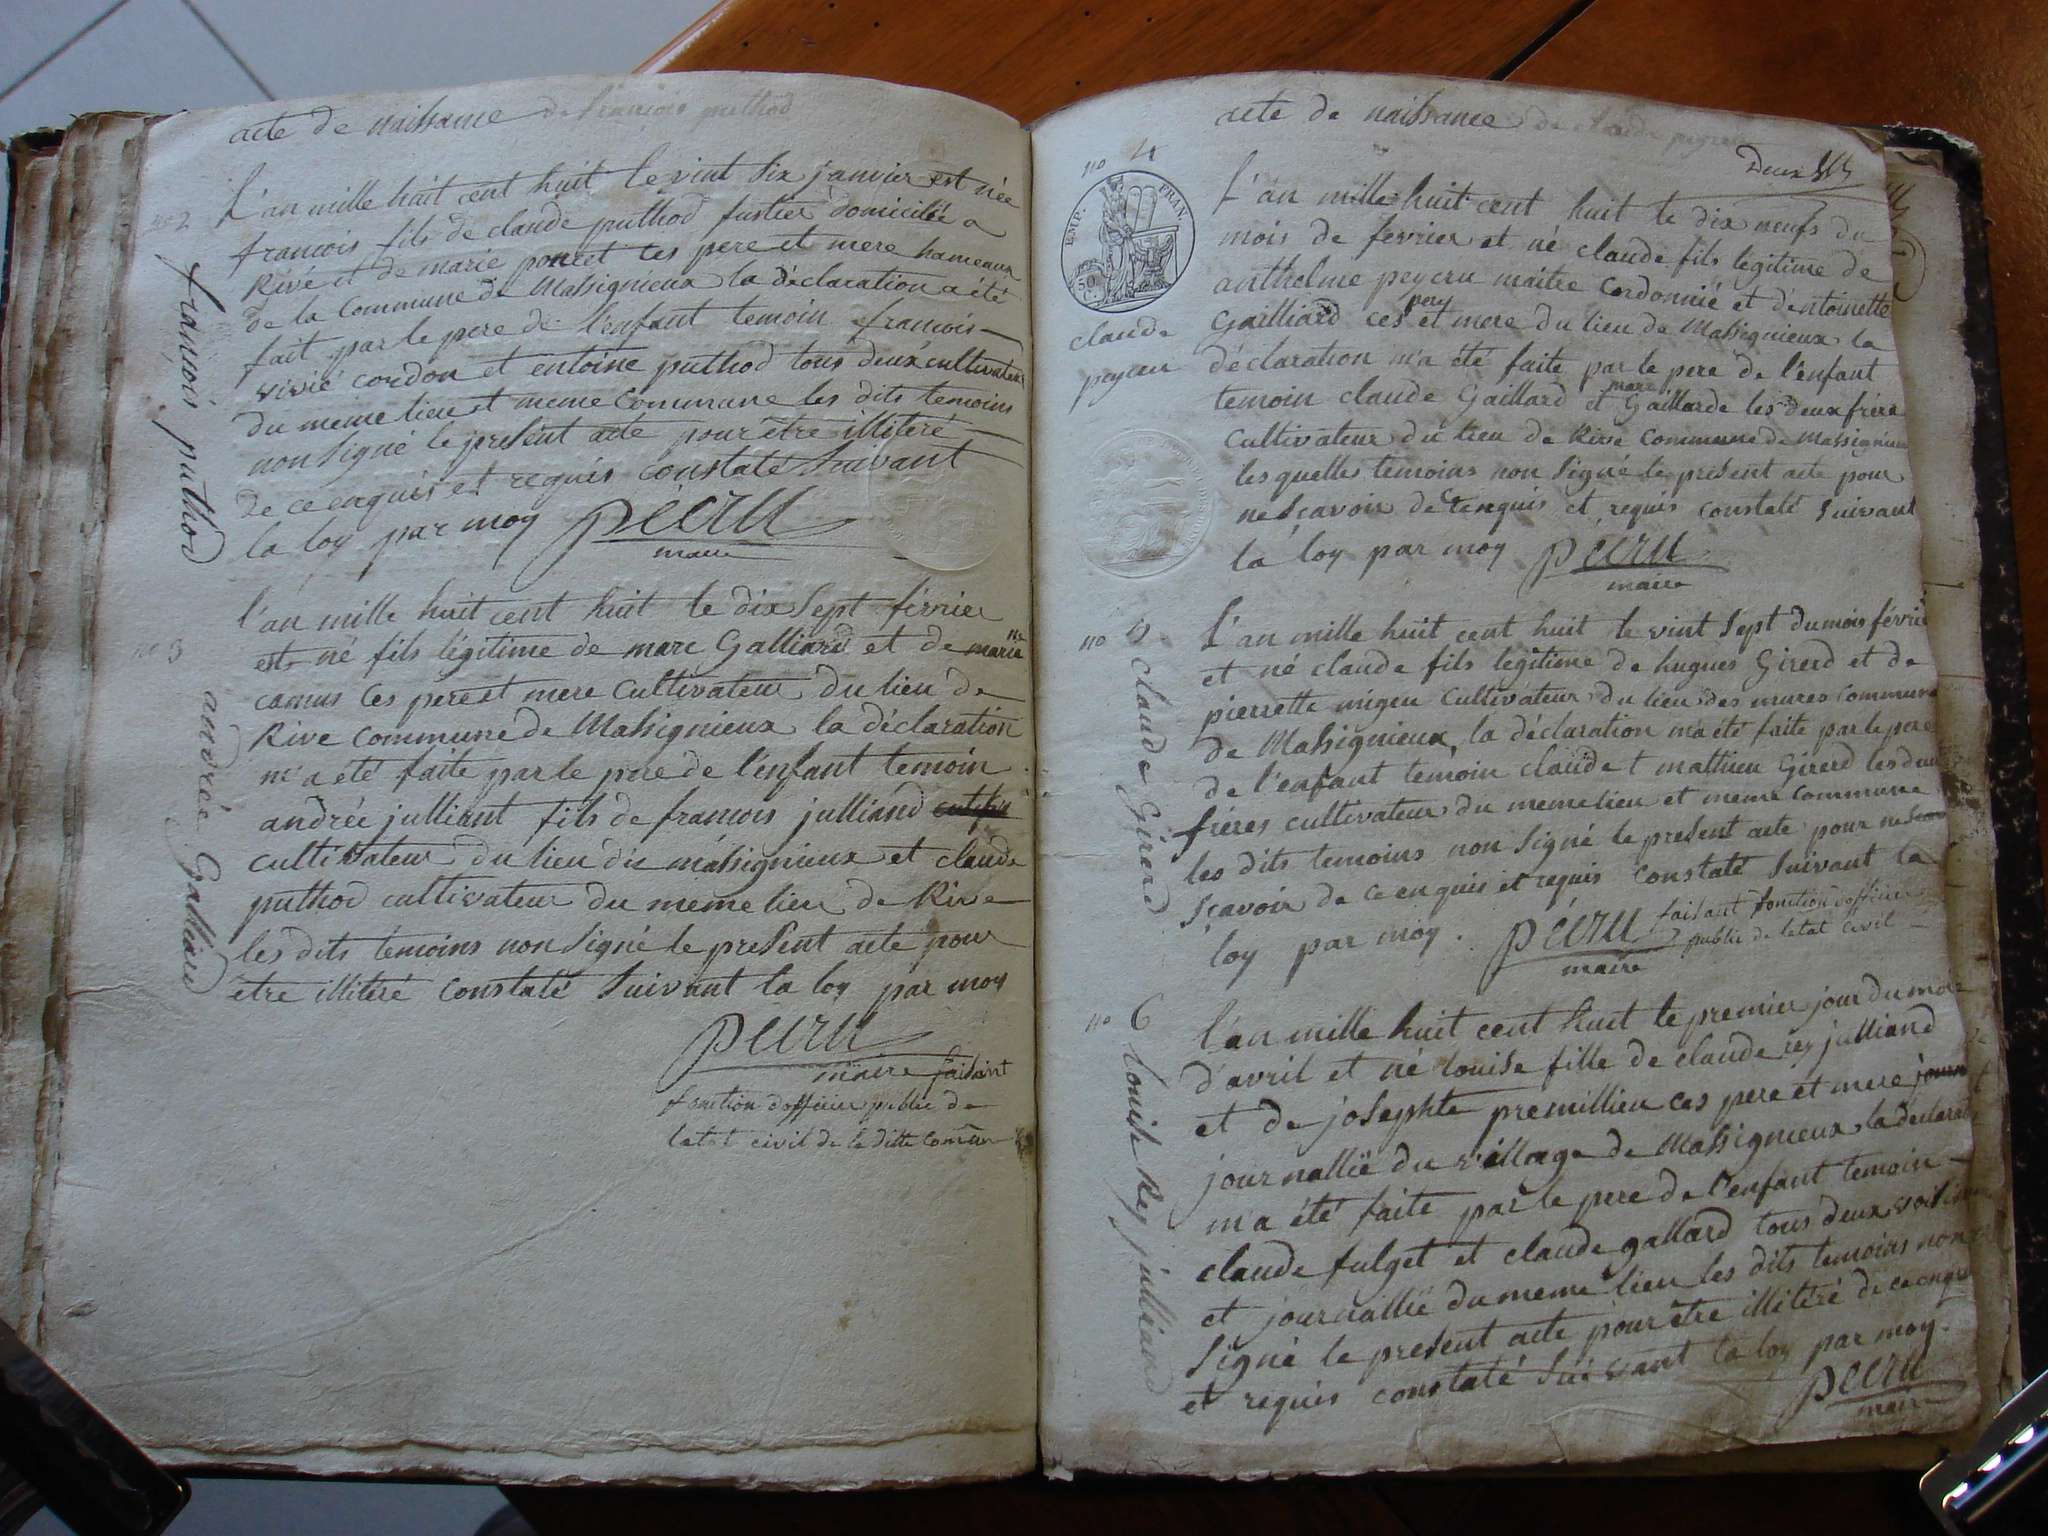 acte de naissance de françois puthod
no 2
françois puthod
L'an mille huit cent huit le vint six janvier est née
francois fils de claude puthod fustier domicilée a
Rive et de marie poncet ces pere et mere hameaux
de la Commune de Massignieux la déclaration a été
fait par le pere de l'enfant temoin francois
vivié cordon et entoine puthod tous deux cultivateur
du meme lieu et meme Commune les dits temoins
non signé le présent acte pour être illiteré
de ce enquis et requis constaté suivant
la loy par moy pécru
maire
no 3
andrée Galliard
l'an mille huit cent huit le dix sept février
est né fils légitime de marc Galliard et de marie
camus ces pere et mere cultivateur du lieu de
Rive commune de Massignieux la déclaration
m'a été faite par le pere de l'enfant temoin
andrée julliant fils de francois julliand
cultivateur du lieu die massignieux et claude
puthod cultivateur du meme lieu de Rive
les dits temoins non signé le present acte pour
etre illiteré constaté suivant la loy par moy
pecru
maire faisant
fonction dofficier public de
letat civil de la ditte comune
acte de naissance de claude peycru
Deux
no 4
EMP. FRAN.
50 C.
claude
peycru
L'an mille huit cent huit le dix neufs du
mois de fevrier et né claude fils legitime de
anthelme peycru maitre cordonnié et dentoinette
Gailliard ces pery et mere du lieu de Massignieux la
déclaration m'a été faite par le pere de l'enfant
temoin claude Gaillard et marc Gaillarde les deux frére
cultivateur du lieu de Rive commune de Massignieux
les quelles temoins non signé le présent acte pour
ne sçavoir de ce enquis et requis constaté suivant
la loy par moy pécru
maire
no 5 claude Girerd
L'an mille huit cent huit le vint sept du mois févrié
et né claude fils legitime de hugues Girerd et de
pierrette migeu cultivateur du lieu des mures commune
de Massignieux, la déclaration m'a été faite par le pere
de l'enfant temoin claude t mathieu Girerd les deux
fréres cultivateur du meme lieu et meme commune
les dits temoins non signé le present acte pour ne
sçavoir de ce enquis et requis constaté suivant la
loy par moy. pécru faisant fonction d'officier
maire public de letat civil
no 6 Louise Rey julliand
l'an mille huit cent huit le premier jour du mois
d'avril et né louise fille de claude rey julliand
et de josephte premillieu ces pere et mere
journallié du village de Massignieux la declaration
m'a été faite par le pere de l'enfant temoin
claude fulget et claude gallard tous deux
et journallié du meme lieu les dits temoins non
signé le present acte pour être illitéré de ce enquis
et requis constaté suivant la loy par moy.
pecru
maire